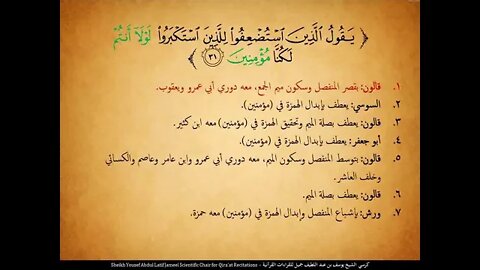 ﴿ يَقُولُ ٱلَّذِينَ ٱسْتُضْعِفُوا۟ لِلَّذِينَ ٱسْتَكْبَرُوا۟ لَوْلَآ أَنتُمْ
لَكُنَّا مُؤْمِنِينَ ٣١ ﴾
١. قالون: بقصر المنفصل وسكون ميم الجمع، معه دوري أبي عمرو ويعقوب.
٢. السوسي: يعطف بإبدال الهمزة في (مؤمنين).
٣. قالون: يعطف بصلة الميم وتحقيق الهمزة في (مؤمنين) معه ابن كثير.
٤. أبو جعفر: يعطف بإبدال الهمزة في (مؤمنين).
٥. قالون: بتوسط المنفصل وسكون الميم، معه دوري أبي عمرو وابن عامر وعاصم والكسائي
وخلف العاشر.
٦. قالون: يعطف بصلة الميم.
٧. ورش: بإشباع المنفصل وإبدال الهمزة في (مؤمنين) معه حمزة.
كرسي الشيخ يوسف بن عبد اللطيف جميل للقراءات القرآنية - Sheikh Yousef Abdul Latif Jameel Scientific Chair for Qira'at Recitations